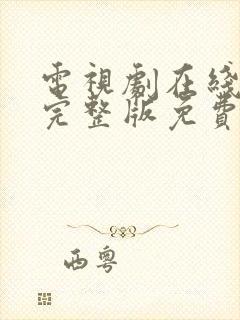 電視劇在綫
完整版免費
西粵